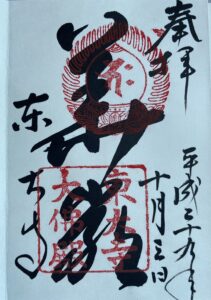 奉拝
平成二十九年
十月三日
華嚴
東大寺
東大寺
大佛殿